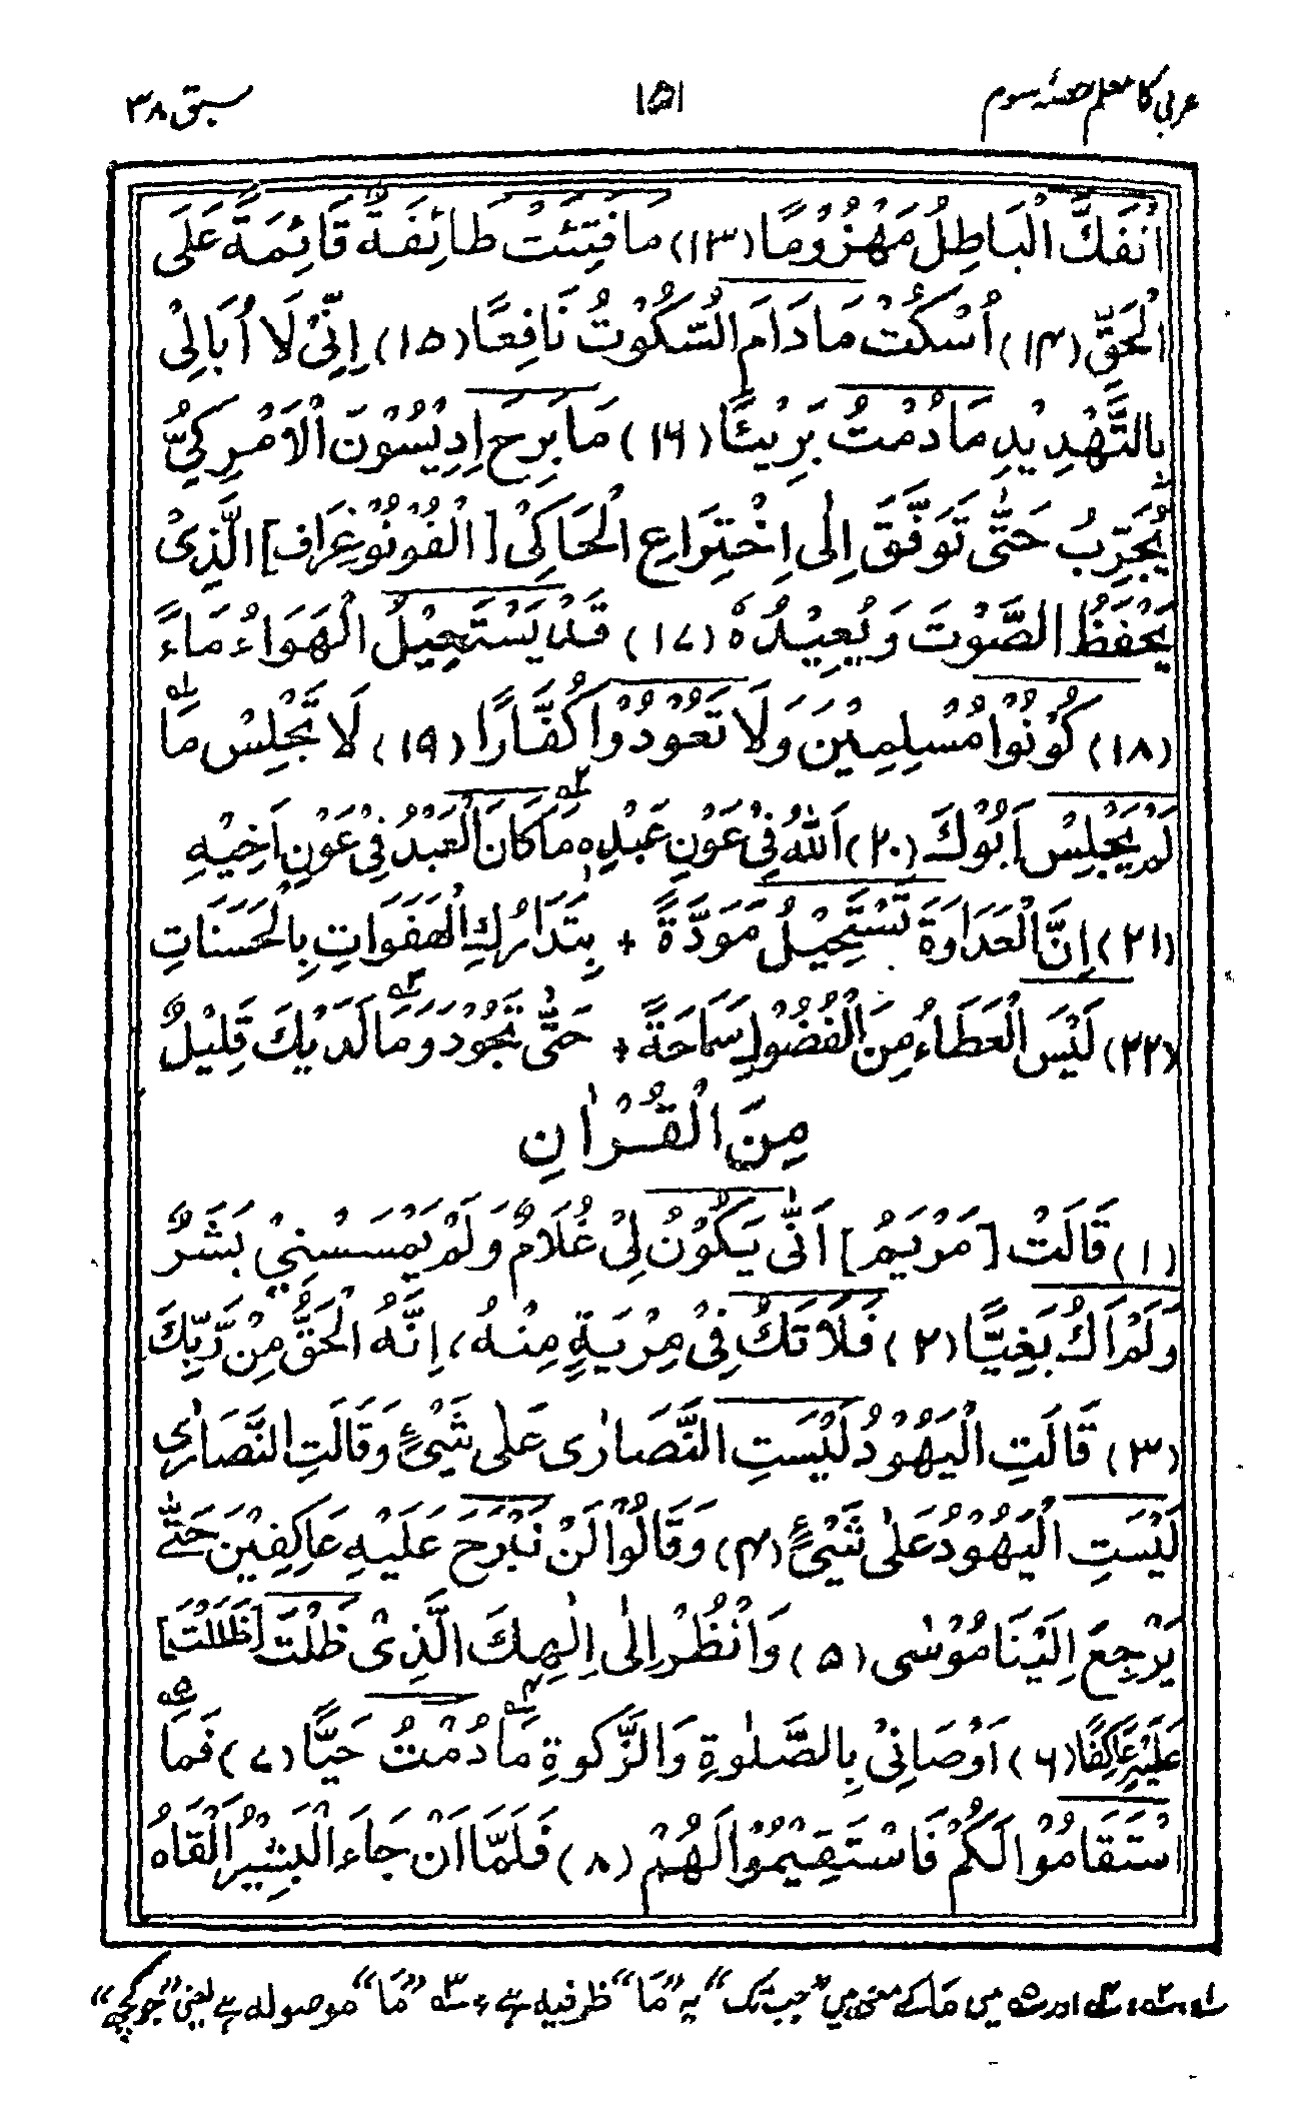 عربی کا معلم حصّہ سوم ۱۵۱ سبق ۳۸
اَنْفَكَّ الْبَاطِلُ مَهْزُوْمًا (۱۳) مَا فَتِئَتْ طَائِفَةٌ قَائِمَةً عَلَى
الْحَقِّ (۱۴) اُسْكُتْ مَا دَامَ السُّكُوْتُ نَافِعًا (۱۵) اِنِّىْ لَا اُبَالِىْ
بِالتَّهْدِيْدِ مَا دُمْتُ بَرِيْئًا (۱۶) مَا بَرِحَ اِدِيْسُوْنَ الْاَمْرِكِىُّ
يُجَرِّبُ حَتّٰى تَوَفَّقَ اِلٰى اِخْتِرَاعِ الْحَاكِىْ [الْفُوْنُوْغِرَاف] الَّذِىْ
يَحْفَظُ الصَّوْتَ وَيُعِيْدُهٗ (۱۷) قَدْ يَسْتَحِيْلُ الْهَوَاءُ مَاءً
(۱۸) كُوْنُوْا مُسْلِمِيْنَ وَلَا تَعُوْدُوْا كُفَّارًا (۱۹) لَا تَجْلِسْ مَا ۱ٖ
لَمْ يَجْلِسْ اَبُوْكَ (۲۰) اَللّٰهُ فِىْ عَوْنِ عَبْدِهٖ مَا ۲ٖ كَانَ الْعَبْدُ فِىْ عَوْنِ اَخِيْهِ
(۲۱) اِنَّ الْعَدَاوَةَ تَسْتَحِيْلُ مَوَدَّةً + بِتَدَارُكِ الْهَفَوَاتِ بِالْحَسَنَاتِ
(۲۲) لَيْسَ الْعَطَاءُ مِنَ الْفُضُوْلِ سَمَاحَةً + حَتّٰى تَجُوْدَ وَمَا ۳ٖ لَدَيْكَ قَلِيْلٌ
مِنَ الْقُرْاٰنِ
(۱) قَالَتْ [مَرْيَمُ] اَنّٰى يَكُوْنُ لِىْ غُلَامٌ وَلَمْ يَمْسَسْنِىْ بَشَرٌ
وَلَمْ اَكُ بَغِيًّا (۲) فَلَا تَكُ فِىْ مِرْيَةٍ مِنْهُ، اِنَّهُ الْحَقُّ مِنْ رَّبِّكَ
(۳) قَالَتِ الْيَهُوْدُ لَيْسَتِ النَّصَارٰى عَلٰى شَىْءٍ وَقَالَتِ النَّصَارٰى
لَيْسَتِ الْيَهُوْدُ عَلٰى شَىْءٍ (۴) وَقَالُوْا لَنْ نَبْرَحَ عَلَيْهِ عَاكِفِيْنَ حَتّٰى
يَرْجِعَ اِلَيْنَا مُوْسٰى (۵) وَانْظُرْ اِلٰى اِلٰهِكَ الَّذِىْ ظَلْتَ [ظَلَلْتَ]
عَلَيْهِ عَاكِفًا (۶) اَوْصَانِىْ بِالصَّلٰوةِ وَالزَّكٰوةِ مَا ۴ٖ دُمْتُ حَيًّا (۷) فَمَا ۵ٖ
اسْتَقَامُوْا لَكُمْ فَاسْتَقِيْمُوْا لَهُمْ (۸) فَلَمَّا اَنْ جَاءَ الْبَشِيْرُ اَلْقَاهُ
۱ٖ، ۲ٖ، ۴ٖ اور ۵ٖ میں مَا کے معنی ہیں ”جب تک“ یہ ”مَا“ ظرفیہ ہے، ۳ٖ ”مَا“ موصولہ ہے یعنی ”جو کچھ“